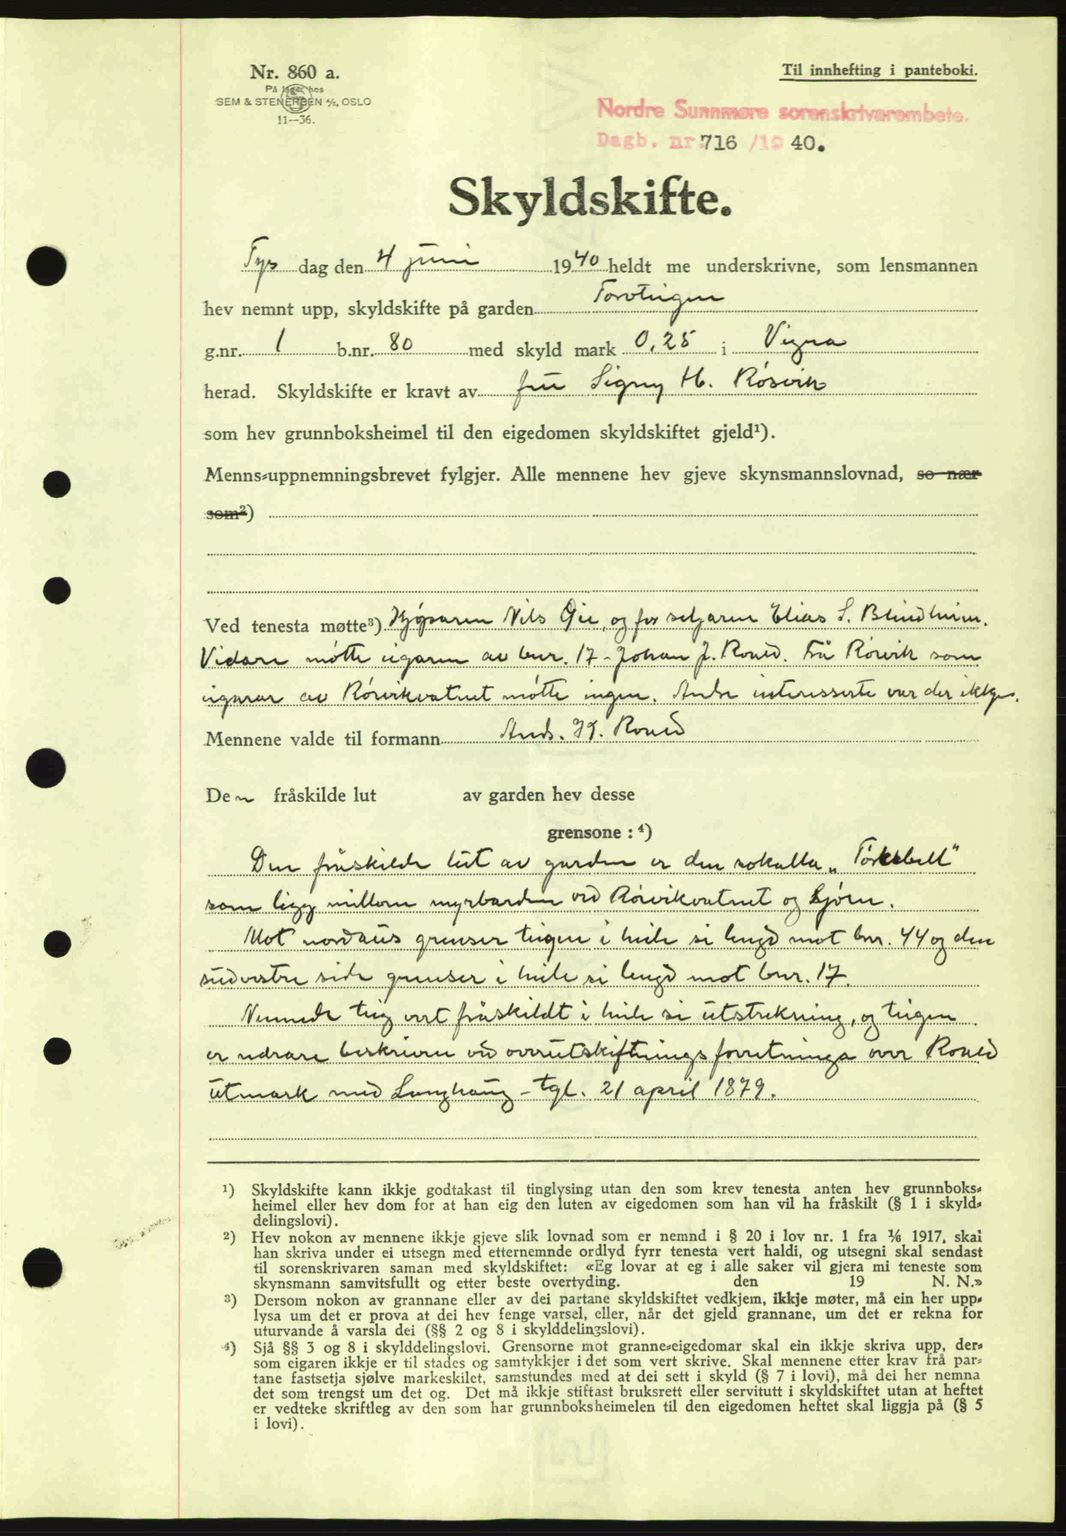 Nr. 860 a.
På lager hos
SEM & STENERSEN A/S, OSLO
11—36.
Til innhefting i panteboki.
Nordre Sunnmøre sorenskrivarembete.
Dagb. nr. 716 /19 40.
Skyldskifte.
Tys dag den 4 juni 1940 heldt me underskrivne, som lensmannen
hev nemnt upp, skyldskifte på garden
g.nr. 1 b.nr. 80 med skyld mark 0,25 i Vigra
herad. Skyldskifte er kravt av fru Signy H. Rösvik
som hev grunnboksheimel til den eigedomen skyldskiftet gjeld¹).
Menns-uppnemningsbrevet fylgjer. Alle mennene hev gjeve skynsmannslovnad, so nær
som²)
Ved tenesta møtte³) Kjöparen Nils Öie, og for seljaren Elias S. Blindheim.
Vidare møtte eigaren av bnr. 17 - Johan J. Roald. Frå Rörvik som
eigarar av Rörvikvatnet møtte ingen. Andre interesserte var der ikkje.
Mennene valde til formann Ands. K. Roald
Den fråskilde lut av garden hev desse
grensone : ⁴)
Den fråskilde lut av garden er den sokalla „
som ligg millom myrbarden ved Rörvikvatnet og Sjöen.
Mot nordaus grenser teigen i heile si lengd mot bnr. 44 og den
sudvestre side grenser i heile si lengd mot bnr. 17.
Nemnde teig vert fråskildt i heile si utstrekning, og teigen
er nærare beskriven ved overutskiftningsforretninga over Roald
utmark med Langhaug - tgl. 21 april 1879.
¹) Skyldskifte kann ikkje godtakast til tinglysing utan den som krev tenesta anten hev grunnboks-
heimel eller hev dom for at han eig den luten av eigedomen som han vil ha fråskilt (§ 1 i skyld-
delingslovi).
²) Hev nokon av mennene ikkje gjeve slik lovnad som er nemnd i § 20 i lov nr. 1 fra 1/6 1917, skal
han skriva under ei utsegn med etternemnde ordlyd fyrr tenesta vert haldi, og utsegni skal sendast
til sorenskrivaren saman med skyldskiftet: «Eg lovar at eg i alle saker vil gjera mi teneste som
skynsmann samvitsfullt og etter beste overtyding. den 19 N. N.»
³) Dersom nokon av grannane eller av dei partane skyldskiftet vedkjem, ikkje møter, må ein her upp-
lysa um det er prova at dei hev fenge varsel, eller, når det gjeld grannane, um det er rekna for
uturvande å varsla dei (§§ 2 og 8 i skylddelingslovi).
⁴) Sjå §§ 3 og 8 i skylddelingslovi. Grensorne mot granne-eigedomar skal ein ikkje skriva upp, der-
som eigaren ikkje er til stades og samtykkjer i det som vert skrive. Skal mennene etter krav frå par-
tane fastsetja sjølve markeskilet, samstundes med at dei sett i skyld (§ 7 i lovi), må dei her nemna
det som trengst um det og. Det må ikkje stiftast bruksrett eller servitutt i skyldskiftet utan at heftet
er vedteke skriftleg av den som har grunnboksheimelen til den eigedomen heftet skal liggja på (§ 5
i lovi).